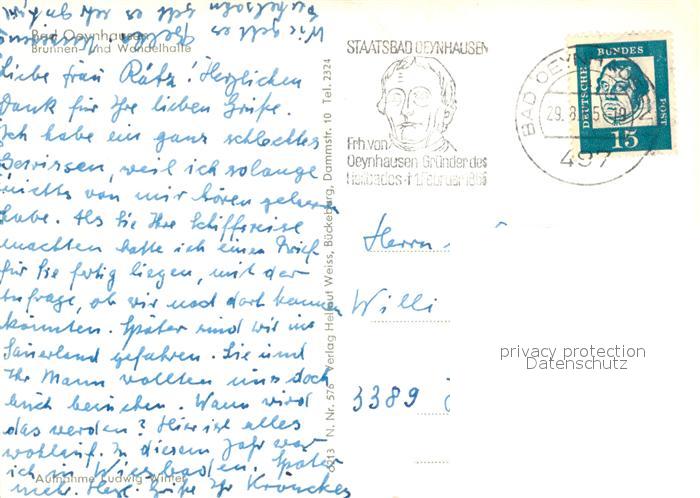 Bad Oeynhausen
Brunnen- und Wandelhalle
Liebe Frau Rätz! Herzlichen
Dank für Ihre lieben Grüße.
Ich habe ein ganz schlechtes
Gewissen, weil ich solange
nichts von mir hören gelassen
habe. Als Sie Ihre Schiffsreise
machten hatte ich einen Brief
für Sie fertig liegen, mit der
Anfrage, ob wir noch dort kommen
könnten. Später sind wir ins
Sauerland gefahren. Sie und
Ihr Mann wollten uns doch
auch besuchen. Wann wird
das werden? Hier ist alles
wohlauf. In diesem Jahr war
ich in Wiesbaden. Später
mehr. Herzl. Grüße Ihr
Aufnahme Ludwig Winter
6213 N. Nr. 576 Verlag Helmut Weiss, Bückeburg, Dammstr. 10 Tel. 2324
STAATSBAD OEYNHAUSEN
Frh. von
Oeynhausen Gründer des
Heilbades
BAD OEYNHAUSEN
29.8.
497
DEUTSCHE BUNDESPOST
15
Herrn
Willi
3389
privacy protection
Datenschutz